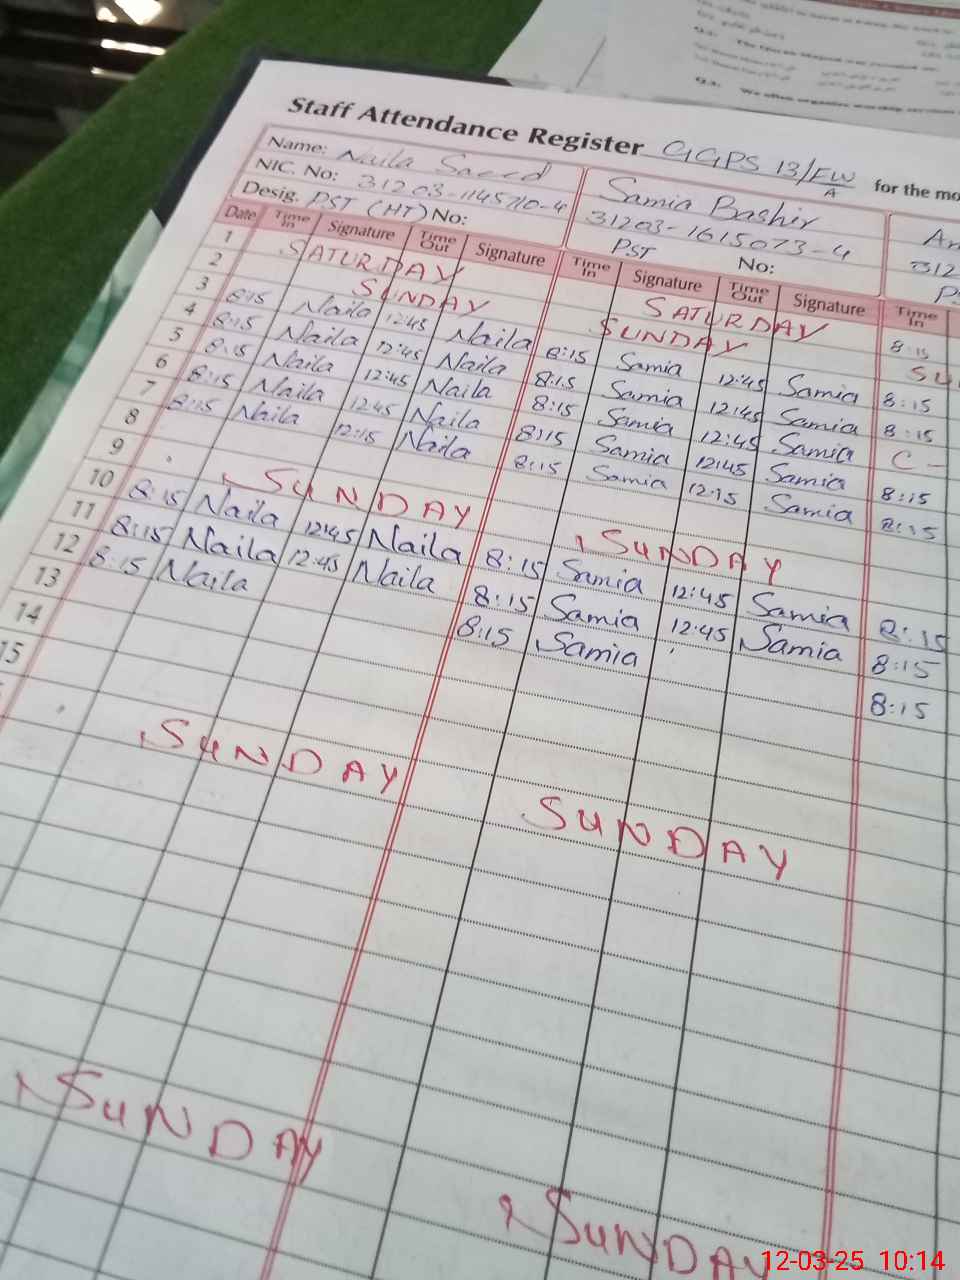 Staff Attendance Register GGPS 13/FW/A for the mo
Name: Naila Saeed
NIC. No: 31203-1145710-4
Desig. PST (HT) No:
Samia Bashir
31203-1615073-4
PST No:
An
312
PS
Date Time In Signature Time Out Signature Time In Signature Time Out Signature Time In
1 SATURDAY SATURDAY 8:15
2 SUNDAY SUNDAY SU
3 8:15 Naila 12:45 Naila 8:15 Samia 12:45 Samia 8:15
4 8:15 Naila 12:45 Naila 8:15 Samia 12:45 Samia 8:15
5 8:15 Naila 12:45 Naila 8:15 Samia 12:45 Samia C-
6 8:15 Naila 12:45 Naila 8:15 Samia 12:45 Samia 8:15
7 8:15 Naila 12:15 Naila 8:15 Samia 12:15 Samia 8:15
8
9 SUNDAY SUNDAY
10 8:15 Naila 12:45 Naila 8:15 Samia 12:45 Samia 8:15
11 8:15 Naila 12:45 Naila 8:15 Samia 12:45 Samia 8:15
12 8:15 Naila 8:15 Samia 8:15
13
14
15
SUNDAY SUNDAY
SUNDAY SUNDAY
12-03-25 10:14